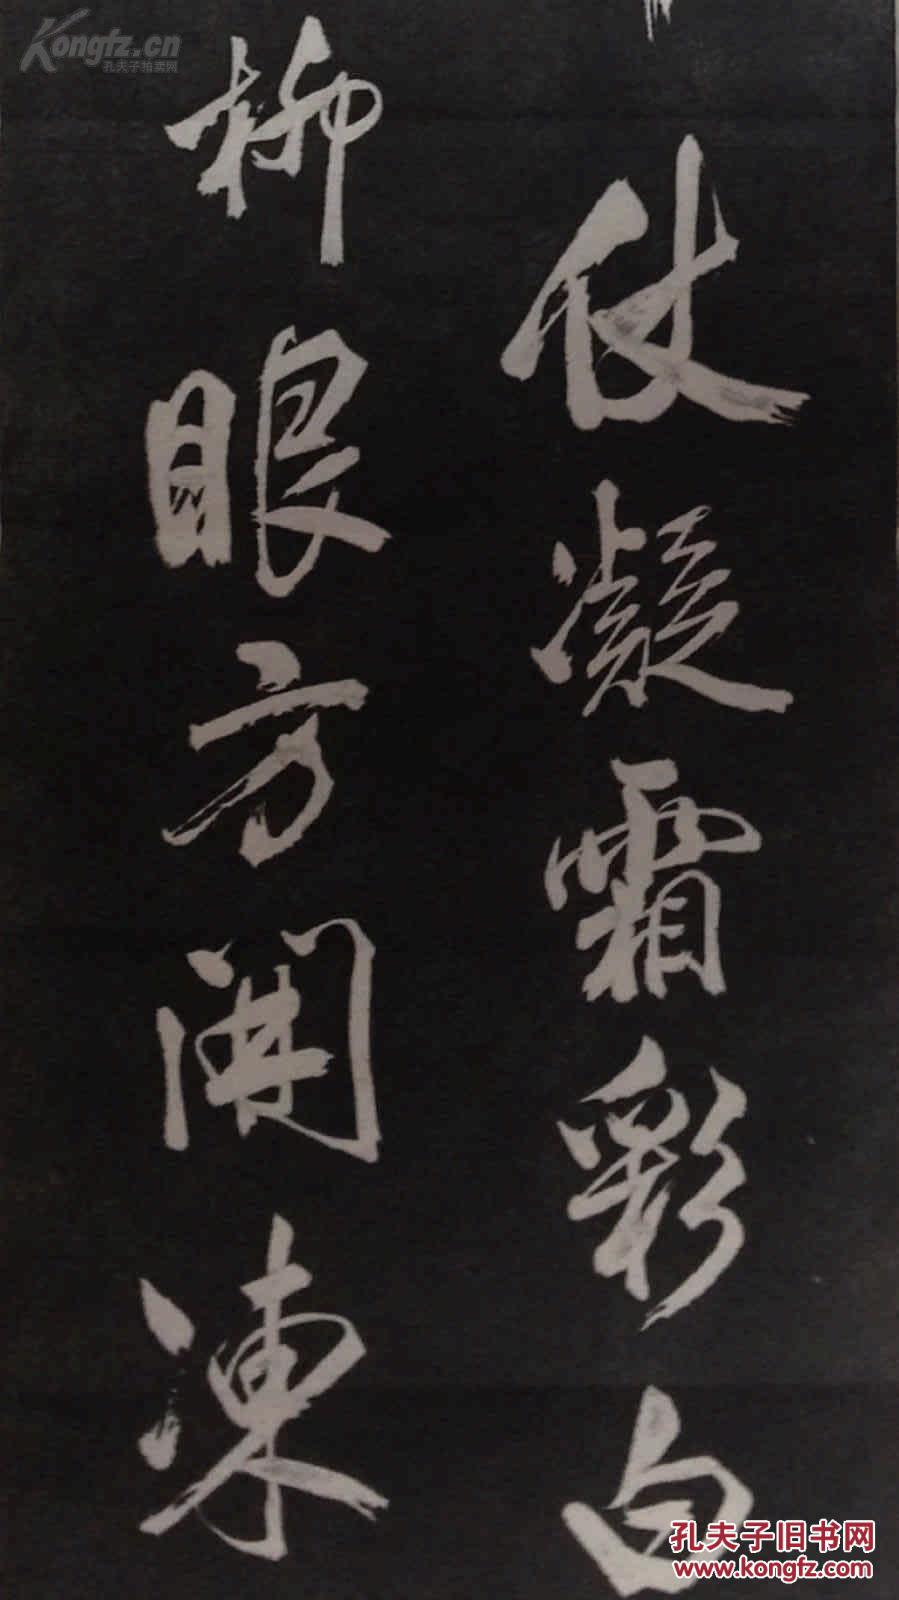 仗凝霜彩白
柳眼方開凍
Kongfz.cn
孔夫子拍卖网
孔夫子旧书网
www.kongfz.com